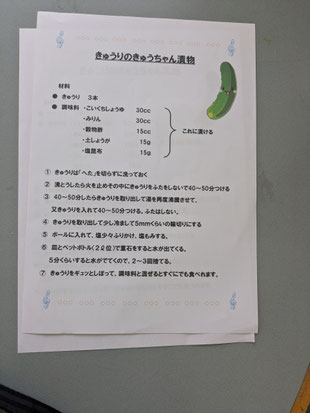 きゅうりのきゅうちゃん漬物
材料
● きゅうり　３本
● 調味料・こいくちしょうゆ　30cc
・みりん　30cc
・穀物酢　15cc
・土しょうが　15g
・塩昆布　15g
これに漬ける
① きゅうりは「へた」を切らずに洗っておく
② 湯とうしたら火を止めその中にきゅうりをふたをしないで40～50分つける
③ 40～50分したらきゅうりを取り出して湯を再度沸騰させて、
又きゅうりを入れて40～50分つける。ふたはしない。
④ きゅうりを取り出して少し冷まして5mmくらいの輪切りにする
⑤ ボールに入れて、塩少々ふりかけ、塩もみする。
⑥ 皿とペットボトル(2ℓ位)で重石をすると水が出てくる。
5分くらいすると水がでてくので、2～3回捨てる。
⑦ きゅうりをギュッとしぼって、調味料と混ぜるとすぐにでも食べれます。